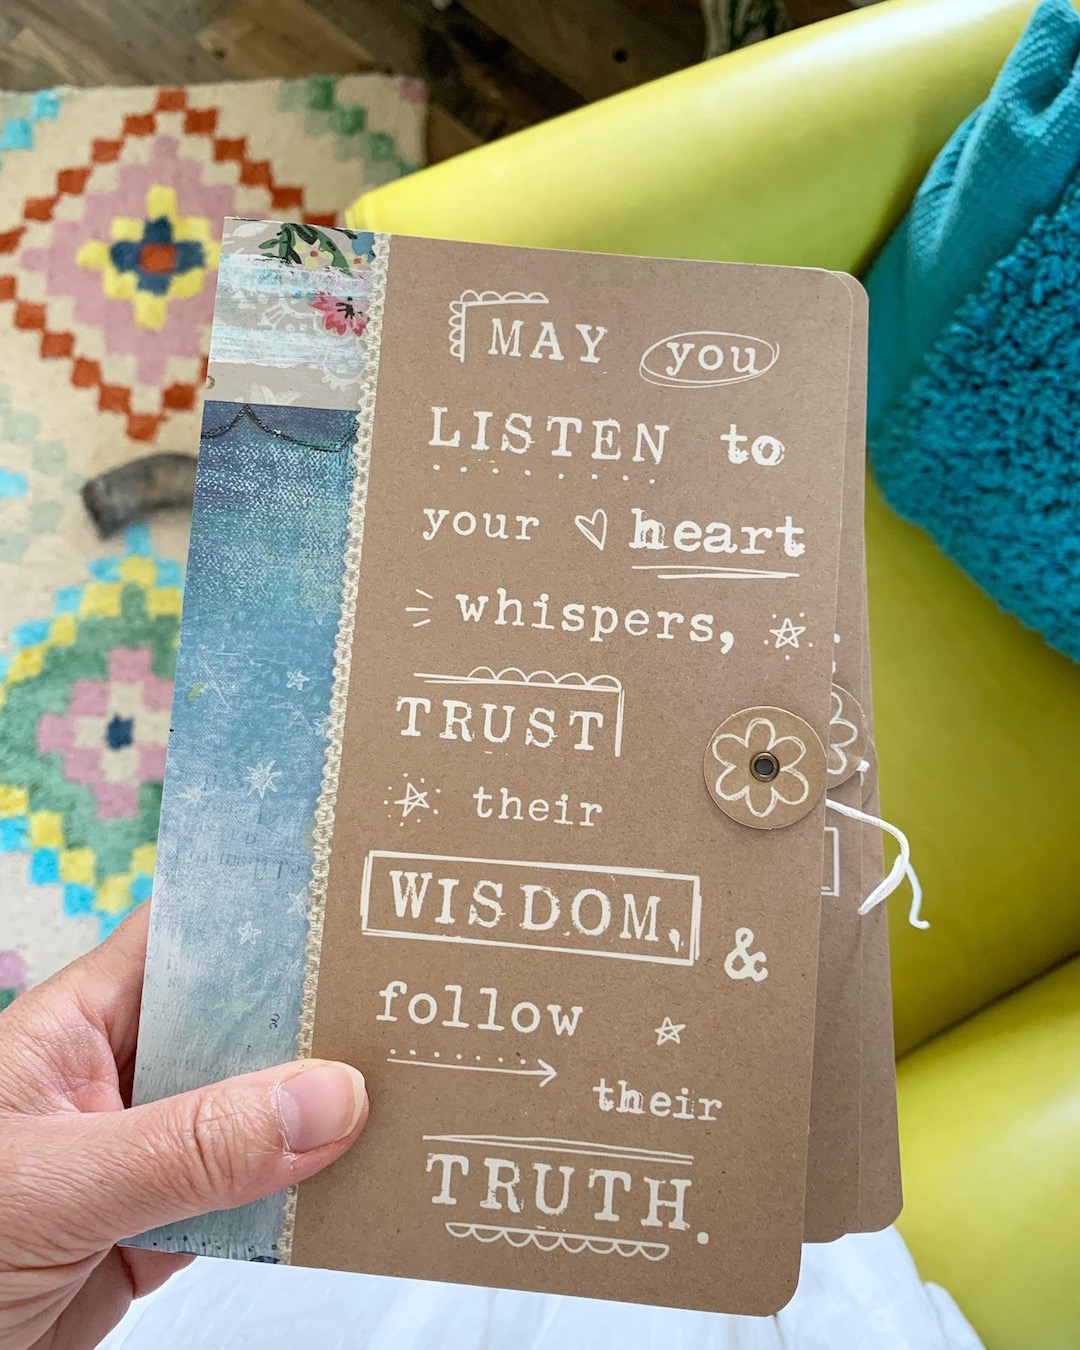 MAY you
LISTEN to
your heart
whispers,
TRUST
their
WISDOM, &
follow
their
TRUTH.